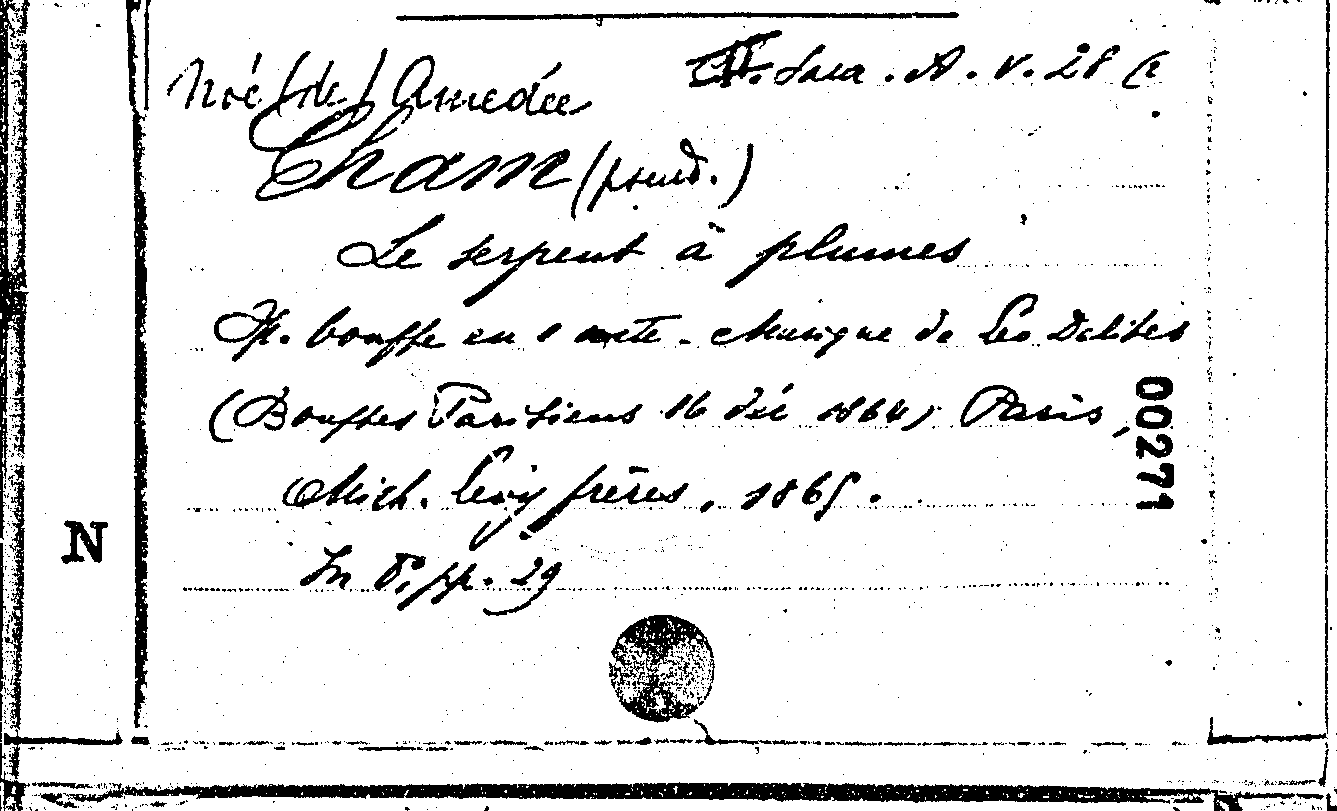 Noé (de) Amédée
A. V. 28 (2
Cham (pseud.)
Le serpent à plumes
Op. bouffe en 1 acte. Musique de Leo Delibes
(Bouffes Parisiens 16 déc 1864) Paris,
Mich. Lévy frères, 1865.
In 8°, pp. 29
N
00271